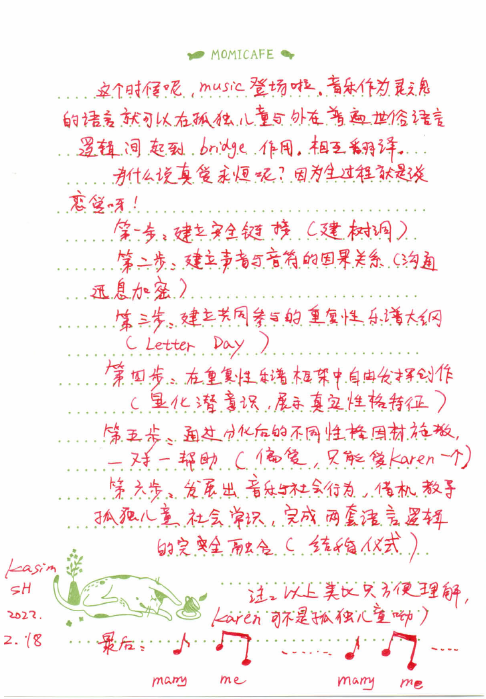 MOMICAFE
这个时候呢，music登场啦，音乐作为灵魂
的语言就可以在孤独儿童与外在普遍世俗语言
逻辑间起到 bridge 作用，相互翻译。
为什么说真爱永恒呢？因为全过程就是谈
恋爱呀！
第一步：建立安全链接（建树洞）
第二步：建立声音与音符的因果关系（沟通
讯息加密）
第三步：建立共同参与的重复性乐谱大纲
（Letter Day）
第四步：在重复性乐谱框架中自由发挥创作
（显化潜意识，展示真实性格特征）
第五步：通过分化后的不同性格因材施教，
一对一帮助（偏爱，只能爱Karen一个）
第六步：发展出音乐与社会行为，借机教予
孤独儿童社会常识，完成两套语言逻辑
的完全融合（结婚仪式）
注：以上类比只方便理解，
Karen可不是孤独儿童呦）
Kasim
SH
2022.
2.18
最后：
marry me marry me